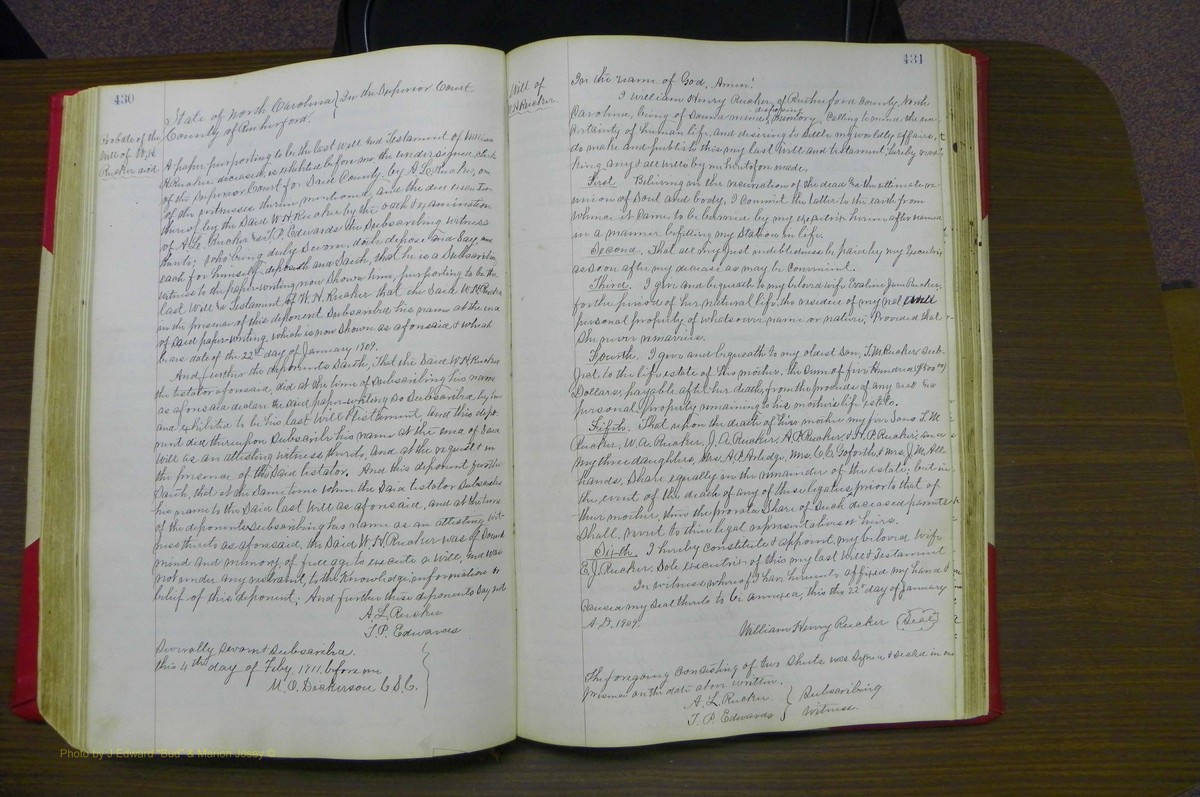 430
Probate of the
Will of W.H.
Rucker decd
State of North Carolina } In the Superior Court
County of Rutherford.
A paper purporting to be the last Will and Testament of William
H. Rucker deceased, is exhibited before me, the undersigned, Clerk
of the Superior Court for Said County, by A. L. Rucker, one
of the witnesses therein mentioned, and the due execution
thereof by the Said W H Rucker by the oath & examination
of A. L. Rucker & T. P. Edwards the Subscribing witness
thereto; who being duly Sworn, doth depose and Say, and
each for himself deposeth and Saith, that he is a Subscribing
witness to the paper-writing now Shown him, purporting to be the
last Will & Testament of W. H. Rucker that the Said W. H. Rucker
in the presence of this deponent Subscribed his name at the end
of Said paper-writing, which is now Shown as aforesaid & which
bears date of the 22nd day of January 1909.
And further the deponents Saith, That the Said W H Rucker
the testator aforesaid, did at the time of Subscribing his name
as aforesaid declare the Said paper-writing So Subscribed by him
and exhibited to be his last Will & Testament. And this depo-
nent did thereupon Subscribe his name at the end of Said
Will as an attesting witness thereto, and at the request & in
the presence of the Said testator. And this deponent further
Saith, that at the Same time when the Said testator Subscribed
his name to the Said last Will as aforesaid, and at the time
of the deponents Subscribing his name as an attesting wit-
ness thereto as aforesaid, the Said W. H. Rucker was of Sound
mind and memory, of free age to execute a Will, and was
not under any restraint, to the Knowledge, information or
belief of this deponent; And further these deponents Say not
A. L. Rucker
T. P. Edwards
Severally Sworn & Subscribed
this 4th day of Feby 1911, before me
M. O. Dickerson C.S.C.
431
Will of
W H Rucker
In the name of God, Amen!
I William Henry Rucker, of Rutherford County, North
Carolina, being of Sound mind & disposing memory, Calling to mind the un-
certainty of human life, and desiring to Settle my worldly affairs,
do make and publish this my last Will and testament, hereby revo-
king any & all wills by me heretofore made.
First. Believing in the resurrection of the dead & in the ultimate re-
union of Soul and body, I Commit the latter to the earth from
whence it Came to be interred by my executrix herein after named
in a manner befitting my Station in life.
Second. That all my just indebtedness be paid by my Executrix
as Soon after my decease as may be Convenient.
Third. I give and bequeath to my beloved wife Evaline Jane Rucker,
for the period of her natural life, the residue of my real and
personal property of whatsoever name or nature; Provided that
She never remarries.
Fourth. I give and bequeath to my oldest Son, T. M. Rucker, Sub-
ject to the life estate of his mother, the Sum of five Hundred
Dollars, payable after her death, from the proceeds of any real &
personal property remaining to his mother's life estate.
Fifth. That upon the death of their mother my five Sons T. M.
Rucker, W. A. Rucker, J. A. Rucker, A. P. Rucker & H. P. Rucker, and
my three daughters, Mrs A. P. Arledge, Mrs. C. C. Goforth & Mrs J. M. Alle
hands, Share equally in the remainder of the estate, but in
the event of the death of any of these legatees prior to that of
their mother, then the prorata Share of Such deceased parents
Shall revert to their legal representatives or heirs.
Sixth. I hereby constitute & appoint, my beloved wife
E. J. Rucker, Sole executrix of this my last will & Testament
In witness whereof I have hereunto affixed my hand &
Caused my Seal thereto to be annexed, this the 22d day of January
A. D. 1909.
William Henry Rucker (Seal)
The foregoing Consisting of two Sheets was Signed & Sealed in our
presence on the date above written.
A. L. Rucker
T. P. Edwards } Subscribing
Witness.
Photo by J Edward "Bud" & Marion Josey ©